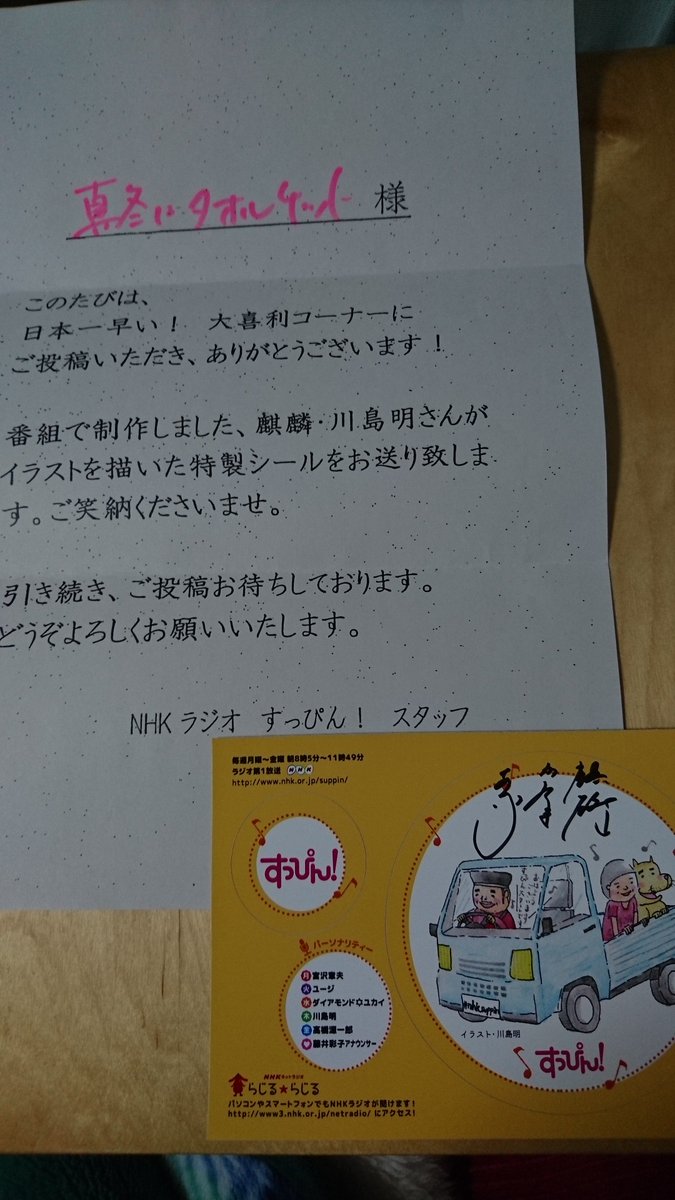 真冬にタオルケット 様
このたびは、
日本一早い！ 大喜利コーナーに
ご投稿いただき、ありがとうございます！
番組で制作しました、麒麟・川島明さんが
イラストを描いた特製シールをお送り致しま
す。ご笑納くださいませ。
引き続き、ご投稿お待ちしております。
どうぞよろしくお願いいたします。
NHKラジオ すっぴん！ スタッフ
毎週月曜～金曜 朝8時5分～11時49分
ラジオ第1放送 NHK
http://www.nhk.or.jp/suppin/
すっぴん!
パーソナリティー
月 宮沢章夫
火 ユージ
水 ダイアモンド✡ユカイ
木 川島明
金 高橋源一郎
藤井彩子アナウンサー
イラスト・川島明
すっぴん!
NHKネットラジオ
らじる★らじる
パソコンやスマートフォンでもNHKラジオが聞けます!
http://www3.nhk.or.jp/netradio/ にアクセス!